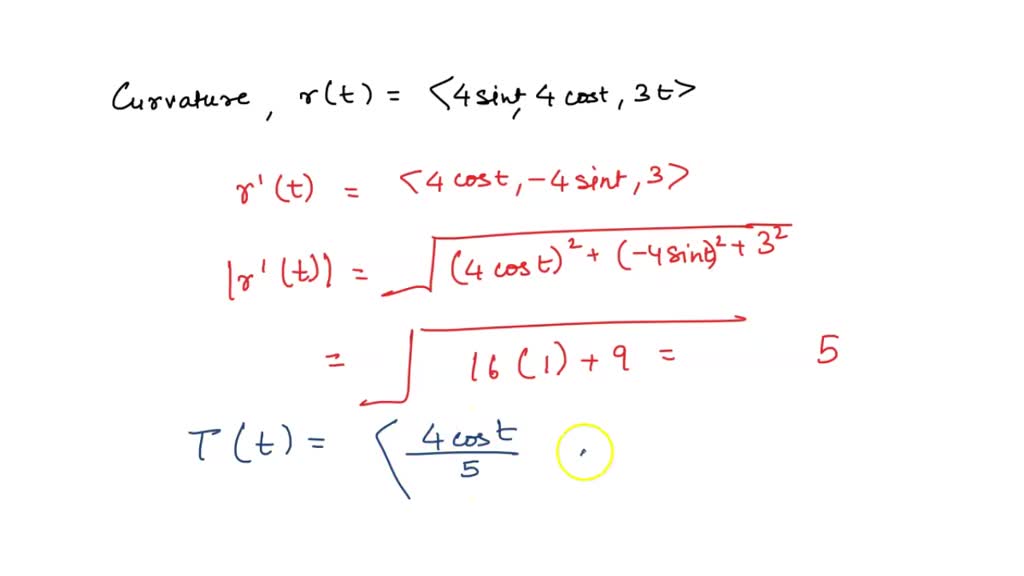 Curvature, r(t) = <4 sint, 4 cost, 3t>
r'(t) = <4 cost, -4 sint, 3>
|r'(t)| = √((4 cos t)² + (-4 sint)² + 3²)
= √(16(1) + 9) = 5
T(t) = < 4 cost / 5 ,